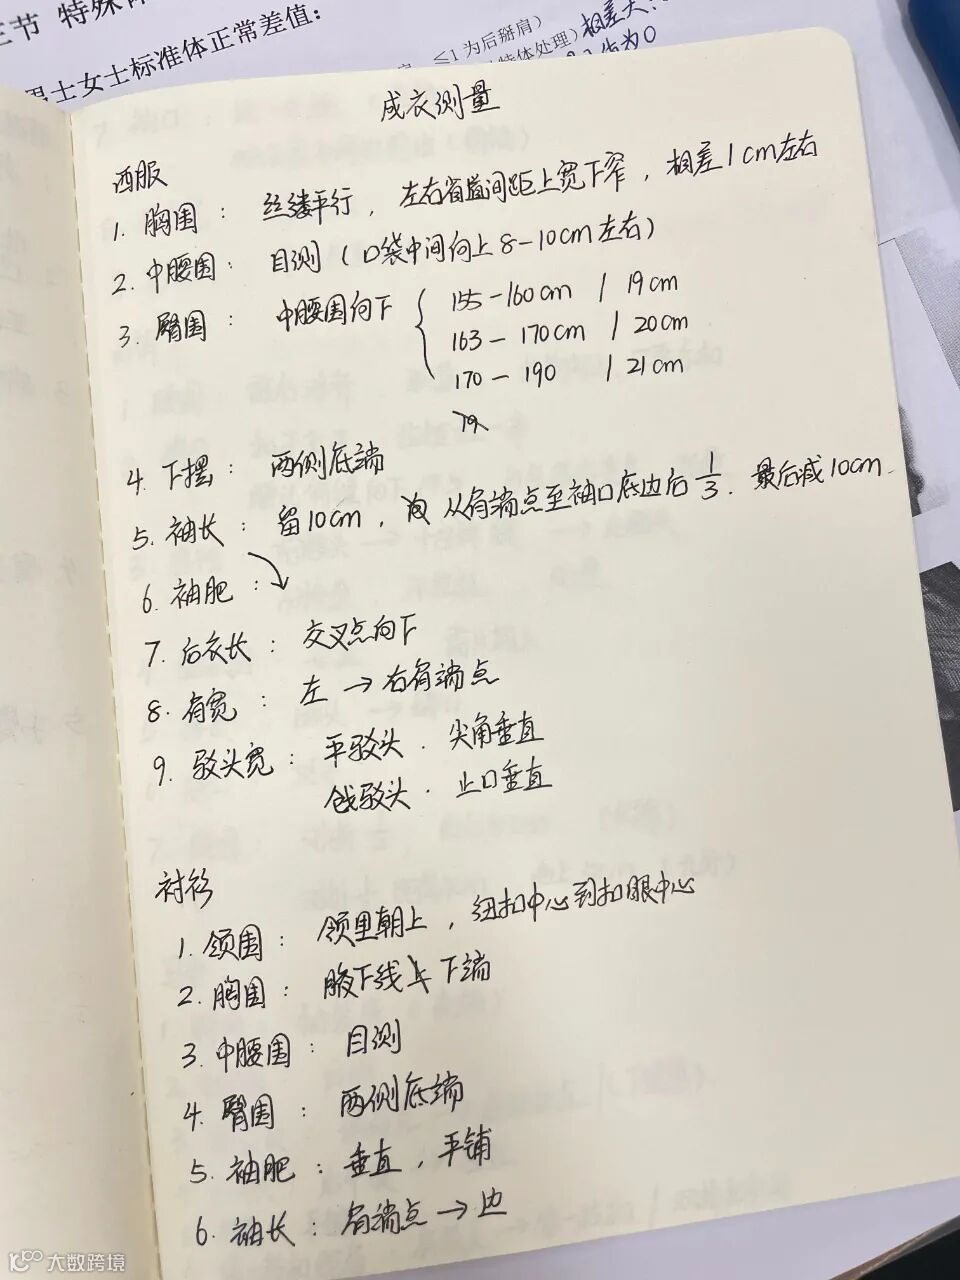 三节 特殊体
男士女士标准体正常差值：
≤1为后掰肩）
特体处理）
相差大
为0
成衣测量
西服
1. 胸围： 丝缕平行，左右省道间距上宽下窄，相差1cm左右
2. 中腰围： 目测（口袋中间向上8-10cm左右）
3. 臀围： 中腰围向下 { 155-160cm / 19cm
163-170cm / 20cm
170-190 / 21cm
4. 下摆： 两侧底端
5. 袖长： 留10cm，从肩端点至袖口底边后1/3. 最后减10cm.
6. 袖肥：
7. 后衣长： 交叉点向下
8. 肩宽： 左→右肩端点
9. 驳头宽： 平驳头. 尖角垂直
戗驳头. 止口垂直
衬衫
1. 领围： 领里朝上，纽扣中心到扣眼中心
2. 胸围： 腋下线下端
3. 中腰围： 目测
4. 臀围： 两侧底端
5. 袖肥： 垂直，平铺
6. 袖长： 肩端点→边
大数跨境